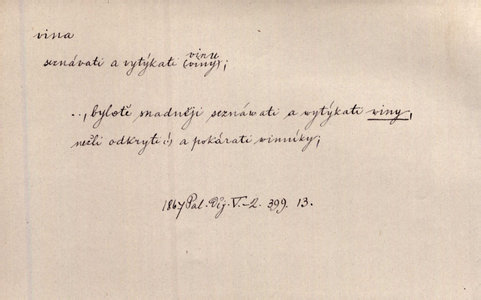 vina
seznávati a vytýkati vinu (viny);
.., byloť snadněji seznáwati a wytýkati winy,
nežli odkryti (!) a pokárati winníky;
1867 Pal. Děj. V.-2. 399. 13.